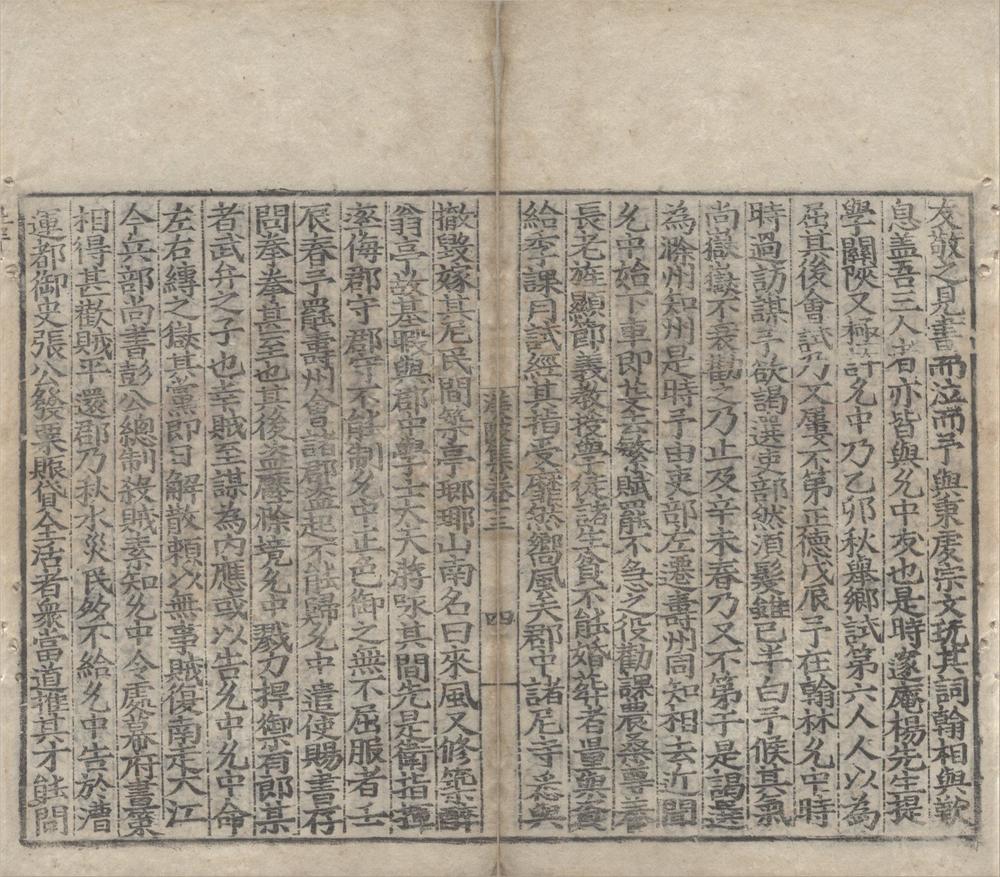 友敬之見書而泣而予與秉虔宗文玩其詞翰相與歎
息盖吾三人者亦皆與允中友也是時邃庵楊先生提
學關陜又極許允中乃乙卯秋舉鄉試第六人人以為
屈其後會試乃又屢不第正德戊辰予在翰林允中時
時過訪謀予欲謁選吏部然須髮雖已半白予候其氣
尚嶽嶽不衰勸之乃止及辛未春乃又不第于是謁選
為滁州知州是時予由吏部左遷壽州同知相去近聞
允中始下車即芟去繁賦罷不急之役勸課農桑尊養
長老旌顯節義教授學徒諸生貧不能婚葬者量與資
給季課月試經其指受靡然嚮風矣郡中諸尼寺悉與
漢陂集卷三
四
撤毀嫁其尼民間築亭瑯琊山南名曰來風又修築醉
翁亭故基暇與郡中學士大夫觴咏其間先是衛指揮
率侮郡守郡守不能制允中正色御之無不屈服者壬
辰春予罷壽州會諸郡盗起不能歸允中遣使賜書存
問拳拳甚至也其後盗壓滁境允中戮力捍禦有郎某
者武弁之子也幸賊至謀為内應或以告允中允中命
左右縛之獄其黨即日解散頼以無事賊復南走大江
今兵部尚書彭公總制殺賊素知允中令處幕府畫策
相得甚歡賊平還郡乃秋水災民多不給允中告於漕
運都御史張公發粟賑貸全活者衆當道推其才能問